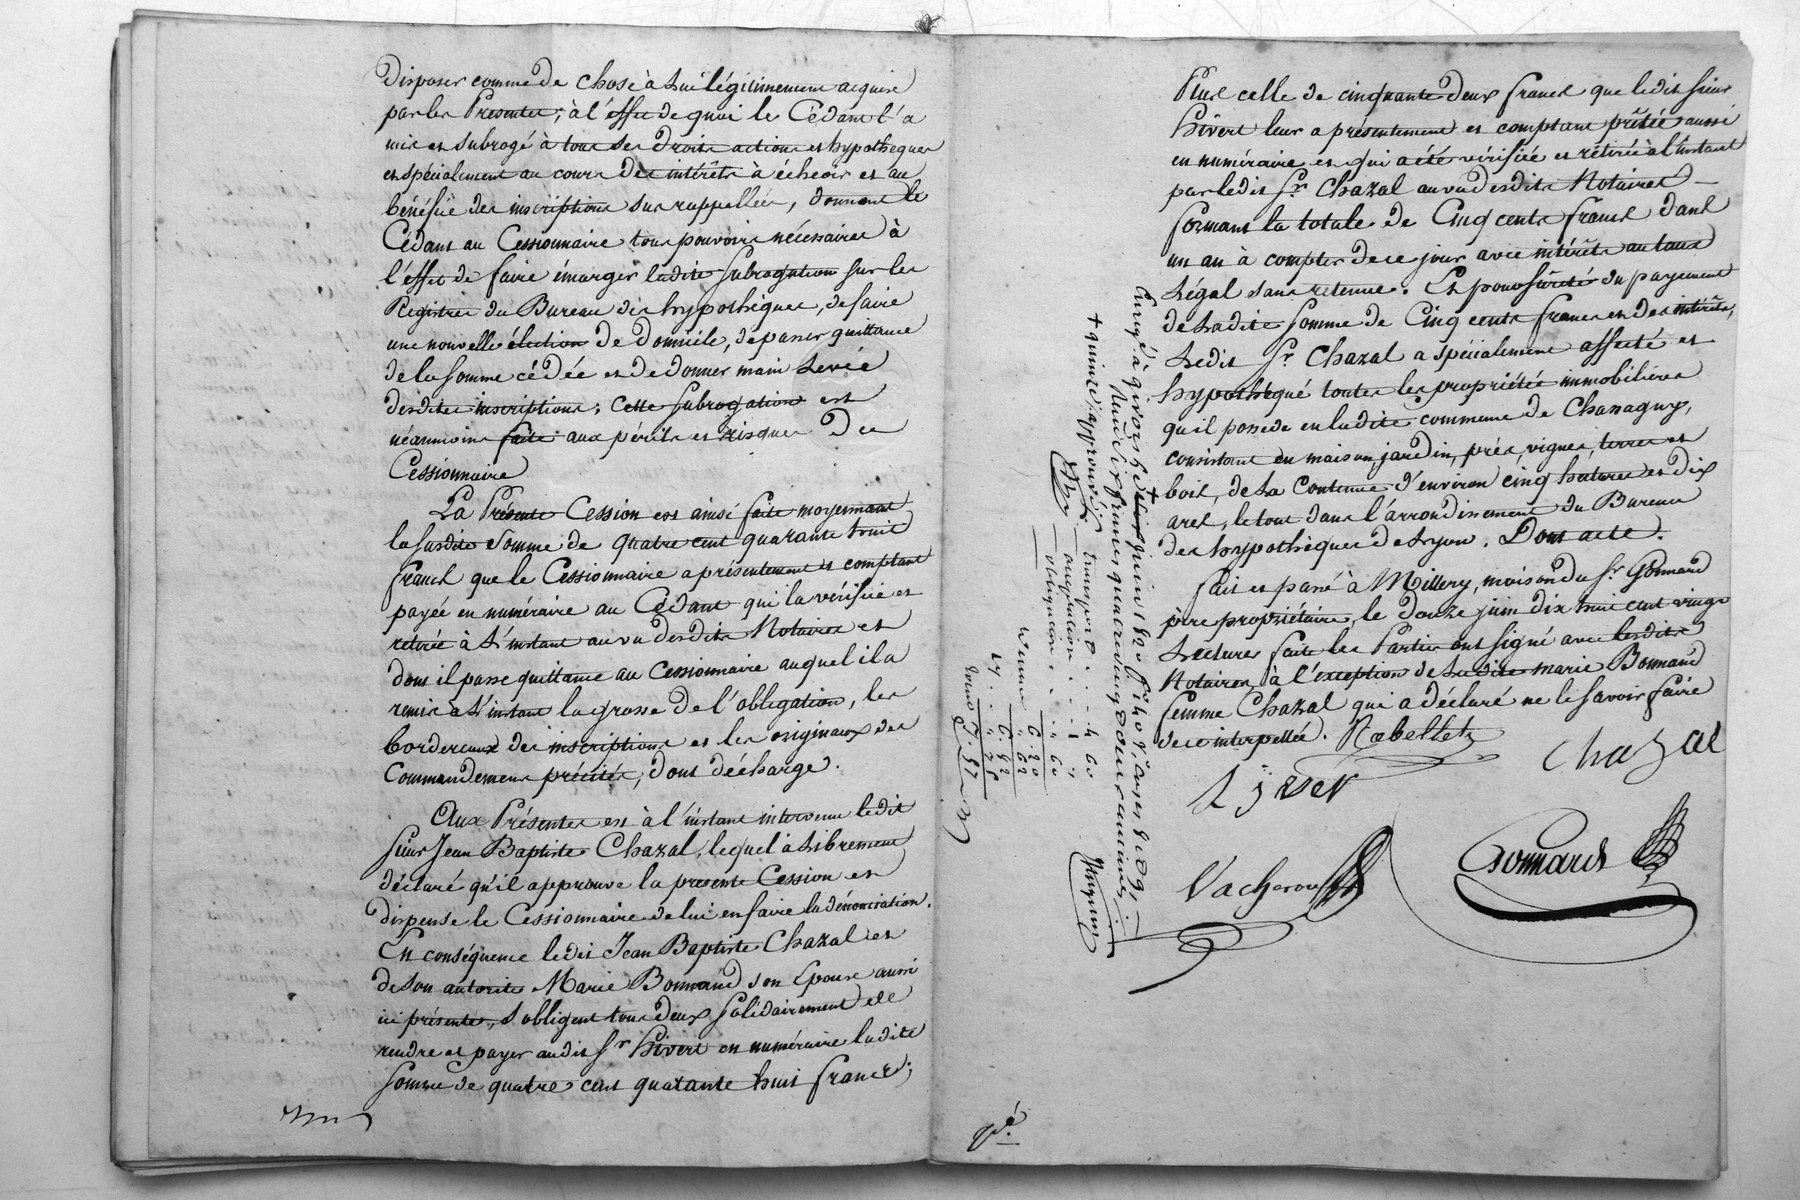 disposer comme de chose à lui légitimement acquise
par les Présentes; à l'effet de quoi le Cédant l'a
mis et subrogé à tous ses droits actions et hypothèques
et spécialement au cours des intérêts à échéoir et au
bénéfice des inscriptions sus rappellées, donnant le
Cédant au Cessionnaire tous pouvoirs nécessaires à
l'effet de faire émarger ladite Subrogation sur les
Registres du Bureau des hypothèques, de faire
une nouvelle élection de domicile, de passer quittance
de la somme cédée et de donner main levée
desdites inscriptions; cette subrogation est
néanmoins faite aux périls et risques du
Cessionnaire
La Présente Cession est ainsi faite moyennant
la susdite somme de quatre cent quarante huit
francs que le Cessionnaire a présentement et comptant
payée en numéraire au Cédant qui la vérifiée et
retirée à l'instant au vu desdits Notaires et
dont il passe quittance au Cessionnaire auquel il a
remis à l'instant la grosse de l'obligation, les
bordereaux des inscriptions et les originaux des
Commandemens précités, dont décharge.
Aux Présentes est à l'instant intervenu ledit
sieur Jean Baptiste Chazal, lequel a librement
déclaré qu'il approuve la presente Cession et
dispense le Cessionnaire de lui en faire la dénonciation.
En conséquence ledit Jean Baptiste Chazal et
de son autorité Marie Bonnand son Epouse aussi
ici présente, s'obligent tous deux solidairement de
rendre et payer audit Sr hivert en numéraire ladite
somme de quatre cent quarante huit francs;
Plus celle de cinquante deux francs que ledit sieur
hivert leur a présentement et comptant prêtée aussi
en numéraire et qui a été vérifiée et retirée à l'instant
par ledit Sr Chazal au vu desdits Notaires
formant la totale de Cinq cents francs dans
un an à compter de ce jour avec intérêts au taux
Légal sans retenue. Et pour sûreté du payement
de Ladite somme de Cinq cents francs et des intérêts,
Ledit Sr Chazal a spécialement affecté et
hypothéqué toutes les propriétés immobilières
qu'il possede en ladite commune de Chassagny,
consistant en maison, jardin, prés, vignes, terres et
bois, de la Contenue d'environ cinq hectares et dix
ares, le tout dans l'arrondissement du Bureau
des hypothèques de Lyon. Dont acte.
Fait et passé à Millery, maison du Sr Gonnard
père propriétaire, le douze juin dix huit cent vingt
Lecture faite les Parties ont signé avec lesdits
Notaires, à l'exception de ladite marie Bonnand
femme Chazal qui a déclaré ne le savoir faire
de ce interpellée. Rabellet
Chazal
hyver
Vacheron
Gonnard
Enregé à givors le juin 1820 fo 140
+ quinze, approuvé
transport . . . 4 60
obligation
6. 20
62
6. 82